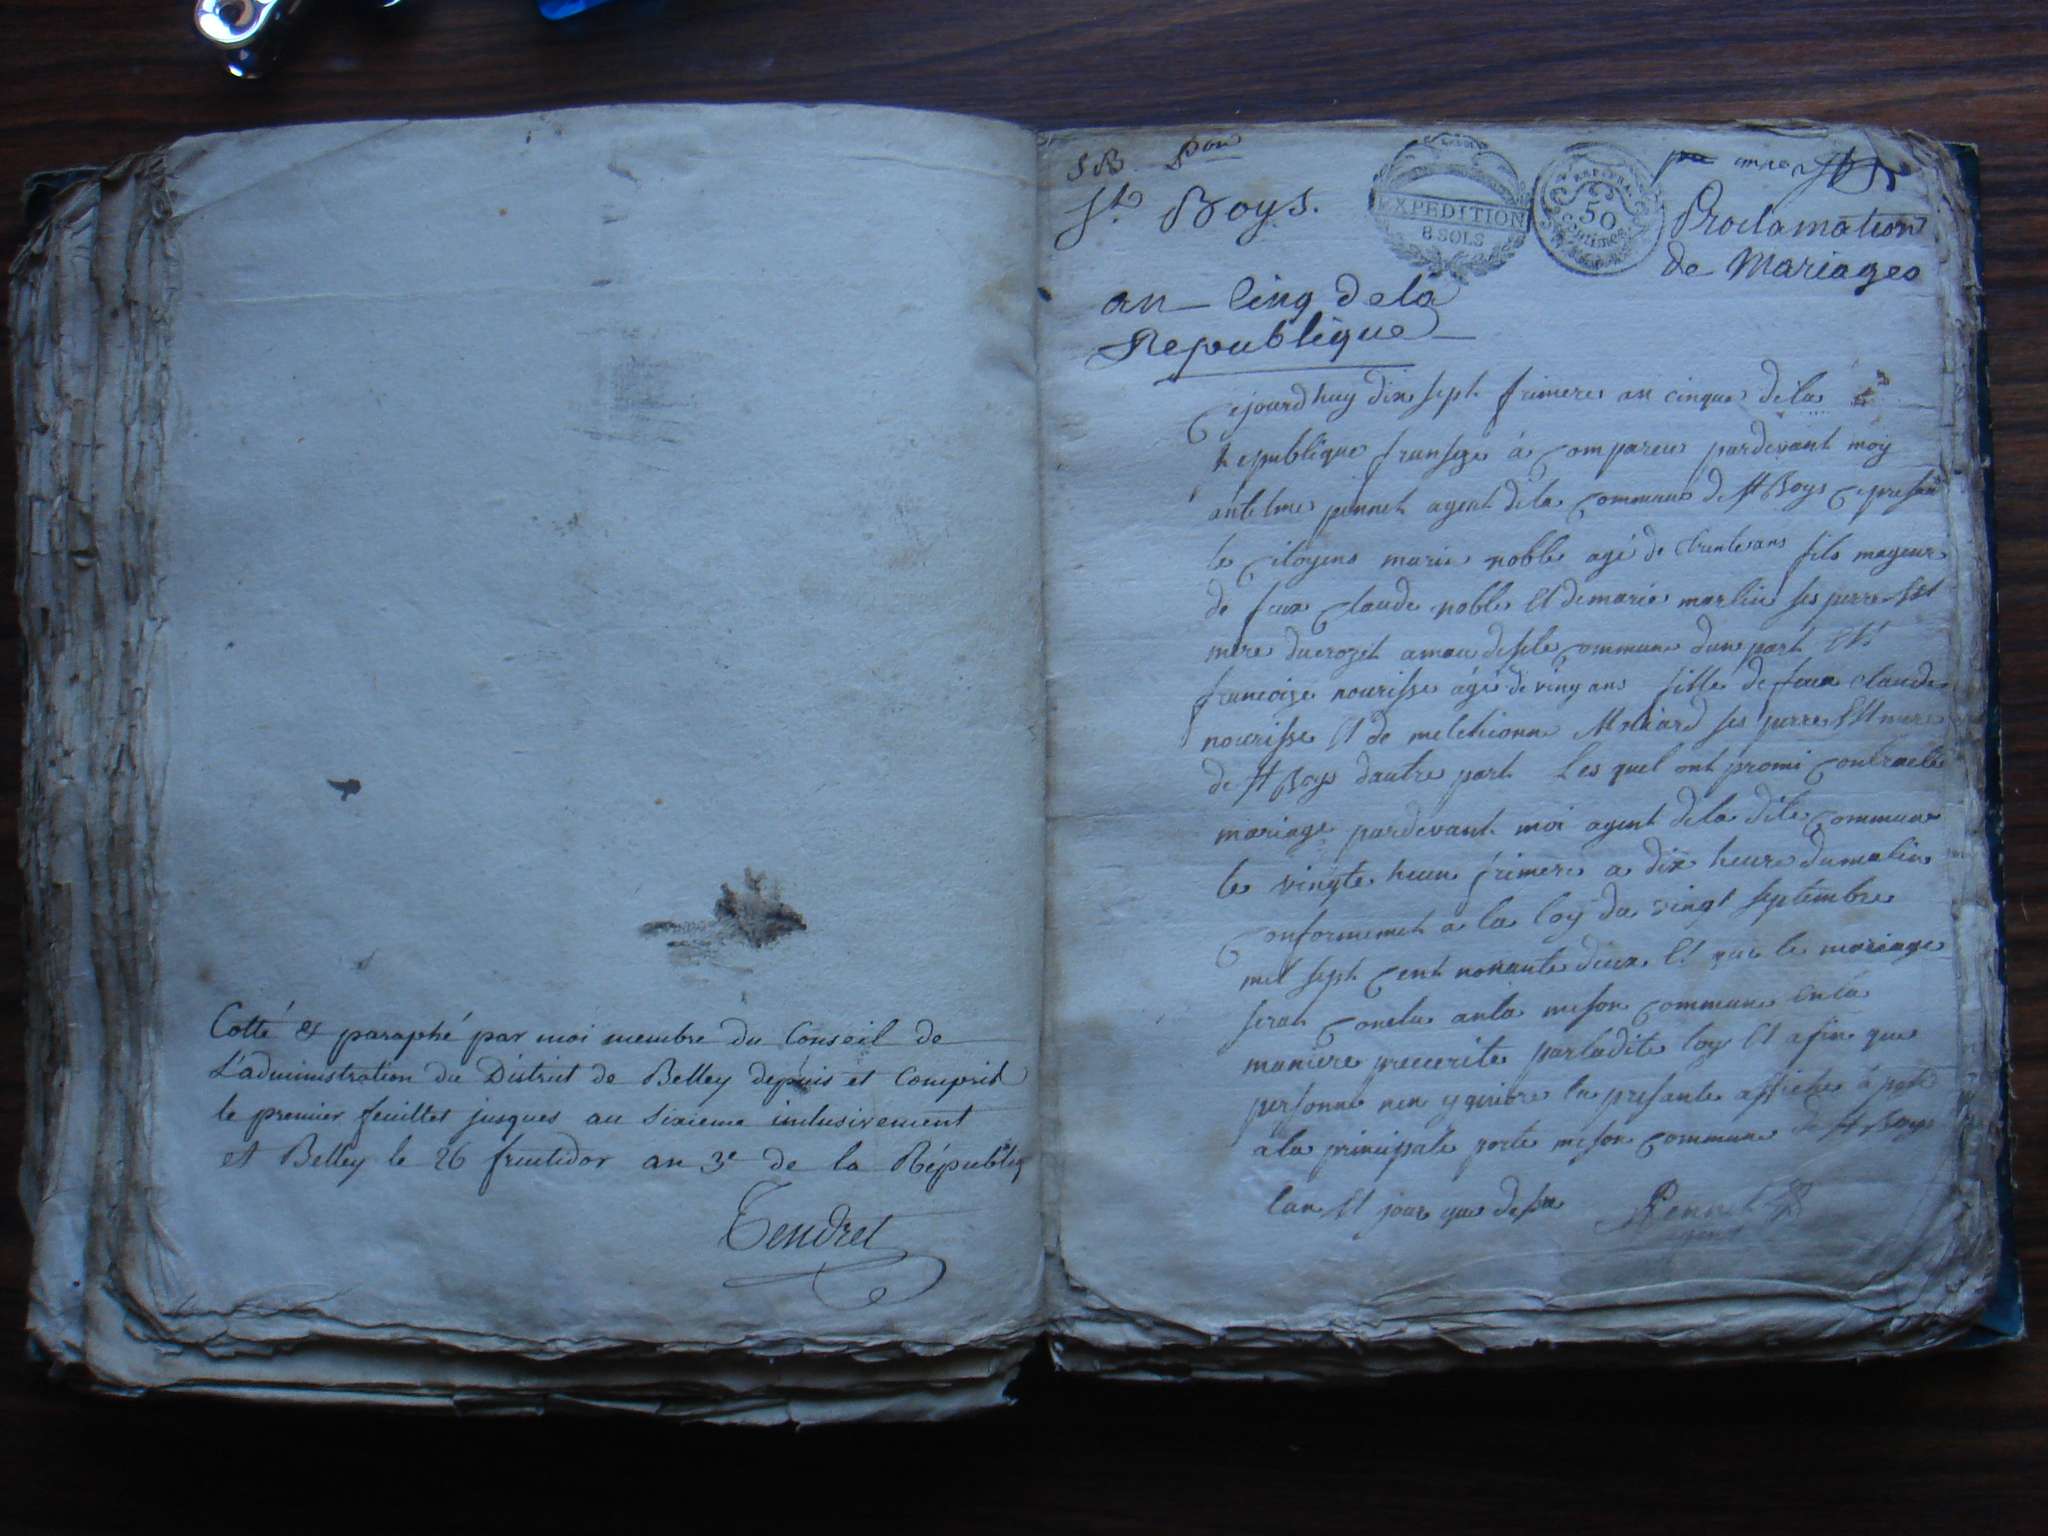 Cotté & paraphé par moi membre du Conseil de
L'administration du District de Belley depuis et Comprid
le premier feuillet jusques au Sixieme inclusivement
et Belley le 26 fructidor an 3e de la Républiq
Tendret
SB Pon
St. Boys.
EXPEDITION
8 SOLS
50
Centimes
Proclamation
de Mariages
an Cinq dela
Republique
Cejourdhuy dix sept frimere an cinque dela
Republique franseze à Compareu pardevant moy
antelme pennet agent dela Commune de St Boys
le Citoyens marie noble agé de trente ans fils mageur
de feux Claude noble Et demarie marlin ses perre Est
mere ducrozet Commune dune part Et
francoise nourisse agé de ving ans fille de feux Claude
nourisse Et de melchionne ses perre Est mere
de St Boys dautre part Les quel ont promi Contracté
mariage pardevant moi agent dela dite Commune
le vingte heun frimere a dix heure dumatin
Conformement a la loy du vingt septembre
mil sept Cent nonante deux Et que le mariage
serat Conclu anla meson Commune
maniere precerite parladite loy Et afin que
personne nen la presante affiche
ala principale porte meson Commune de St Boys
lan Et jour que desu Pennet